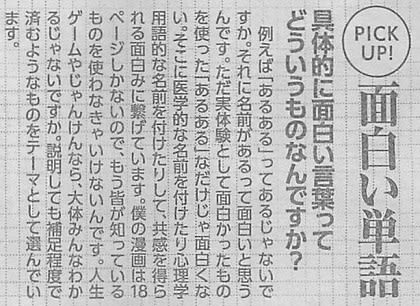 PICK UP!
面白い単語
具体的に面白い言葉って
どういうものなんですか?
例えば「あるある」ってあるじゃないで
すか。それに名前があるって面白いと思う
んです。ただ実体験として面白かったもの
を使った「あるある」なだけじゃ面白くな
い。そこに医学的な名前を付けたり心理学
用語的な名前を付けたりして、共感を得ら
れる面白みに繋げています。僕の漫画は18
ページしかないので、もう皆が知っている
ものを使わなきゃいけないんです。人生
ゲームやじゃんけんなら、大体みんなわか
るじゃないですか。説明しても補足程度で
済むようなものをテーマとして選んでい
ます。